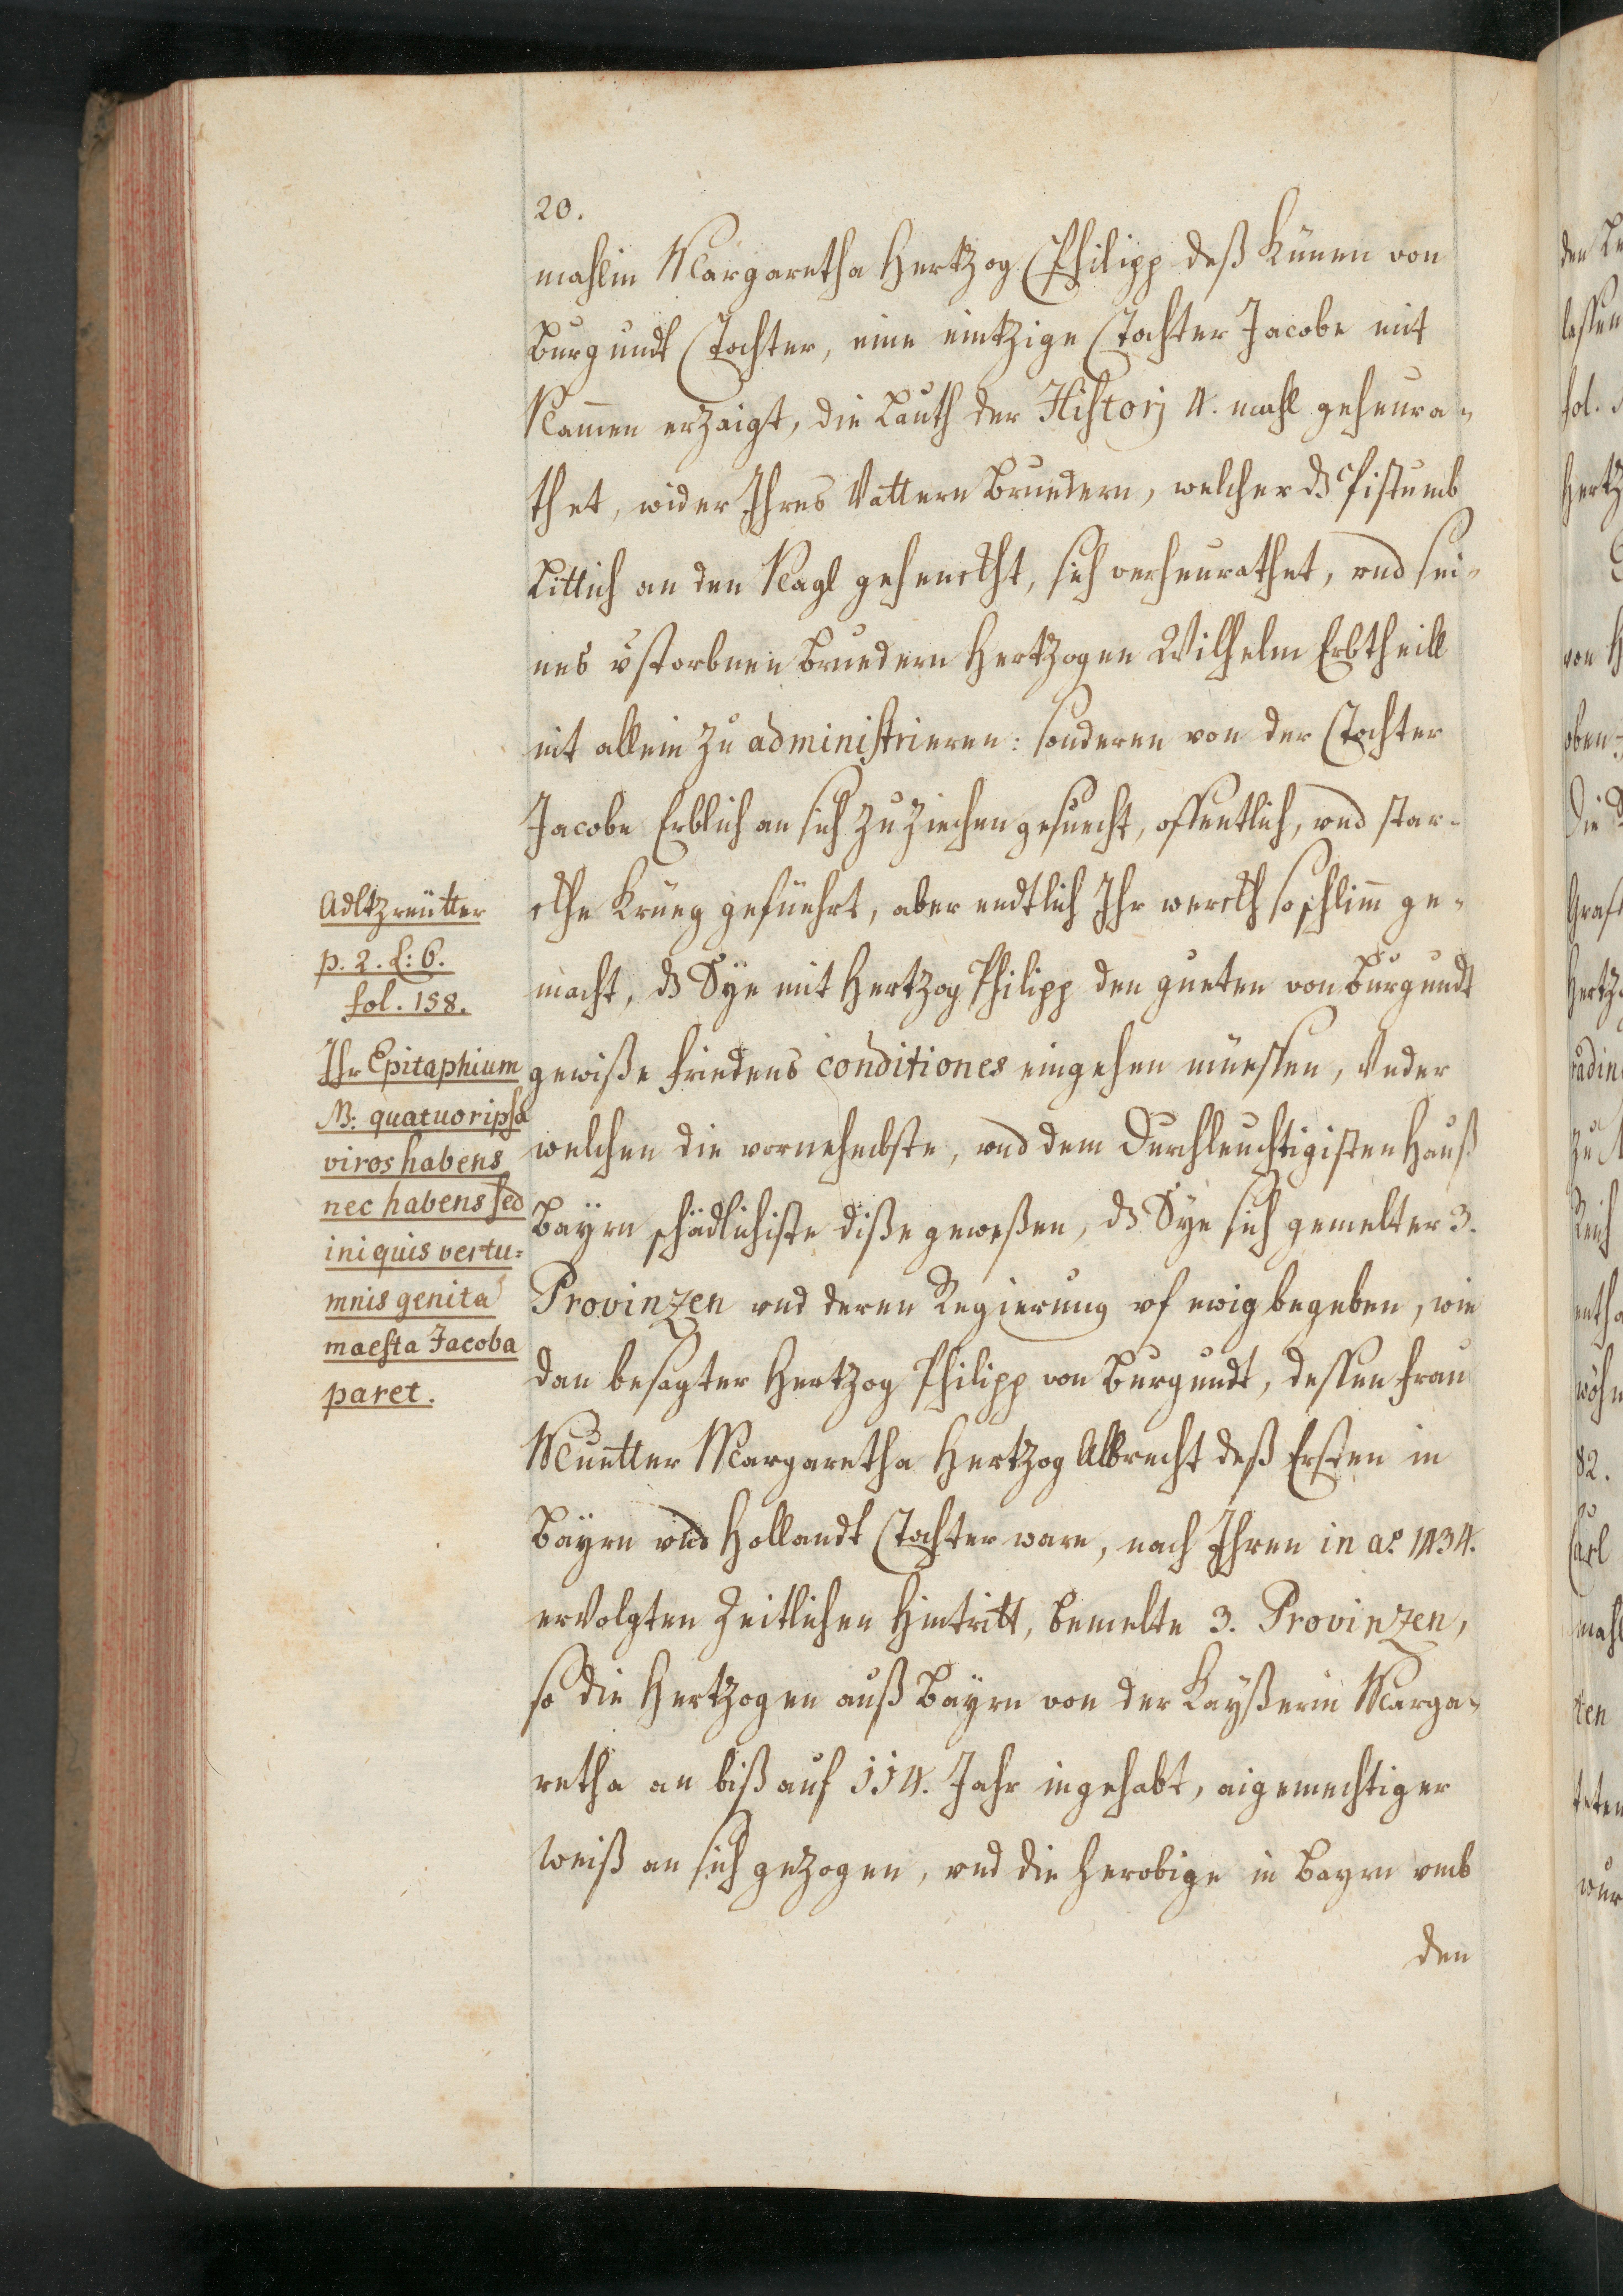 20.
mahlin Margaretha Hertzog Philipp deß Küenen von
Burgundt Tochter, eine eintzige Tochter Jacobe mit
Nammen erzaigt, die Lauth der Historj 4. mahl geheura-
thet, wider Ihres Vattern Bruedern, welcher dz Pistumb
Littich an den Nagl gehenckht, sich verheurathet, vnd sei-
nes vstorbnen Bruedern Hertzogen Wilhelm Erbtheill
nit allein zu administrieren: sonderen von der Tochter
Jacobe Erblich an sich zuziechen gesuecht, offentlich, vnd star-
ckhe Krüeg geführt, aber endtlich Ihr werckh so schlimm ge-
macht, dz Sye mit Hertzog Philipp den gueten von Burgundt
gewiße fridens conditiones eingehen müessen, Vnder
welchen die vornehmbste, vnd dem Durchleuchtigisten Hauß
Bayrn schädlichiste diße geweßen, dz Sye sich gemelter 3.
Provinzen vnd deren Regierung vf ewig begeben, wie
dan besagter Hertzog Philipp von Burgundt, dessen frau
Muetter Margaretha Hertzog Albrecht deß Ersten in
Bayrn vnd Hollandt Tochter ware, nach Ihren in ao. 1434.
ervolgten Zeitlichen Hintritt, bemelte 3. Provinzen,
so die Hertzogen auß Bayrn von der Kayßerin Marga-
retha an biß auf 114. Jahr ingehabt, aigenmechtiger
Weiß an sich gezogen, vnd die herobige in Bayrn vmb
den
Adltzreütter
p. 2. l: 6.
fol. 158.
Ihr Epitaphium
NB: quatuor ipsa
viros habens
nec habens sed
iniquis vertu=
mnis genita
maesta Jacoba
paret.